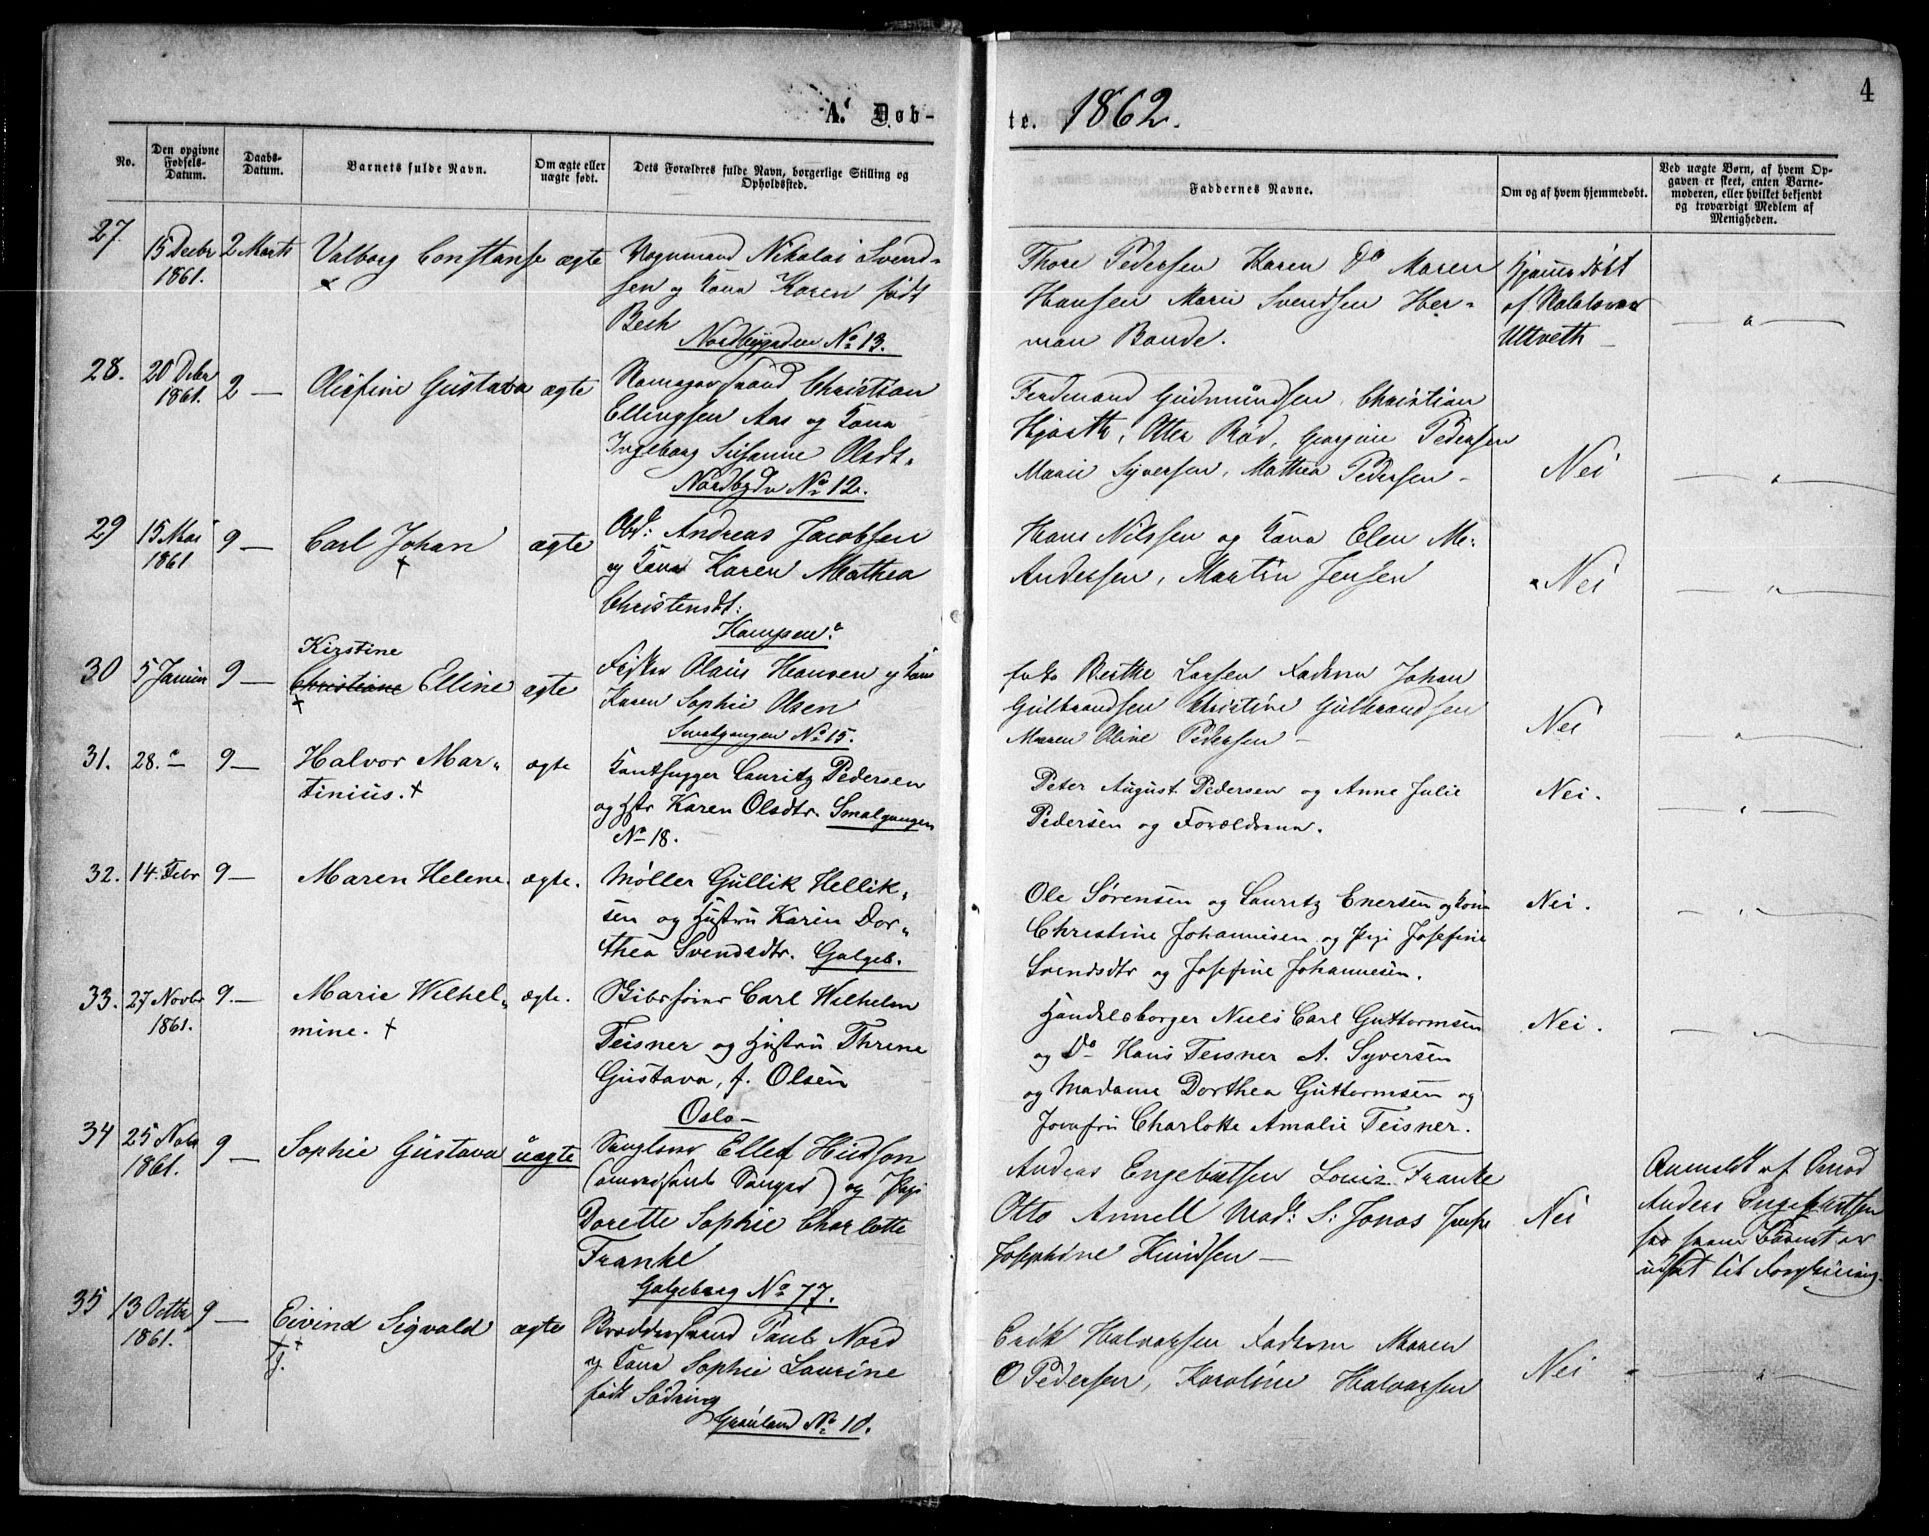 4
A. Døb-
te. 1862.
No.
Den opgivne Fødsels-Datum.
Daabs-Datum.
Barnets fulde Navn.
Om ægte eller uægte født.
Dets Forældres fulde Navn, borgerlige Stilling og Opholdsted.
Faddernes Navne.
Om og af hvem hjemmedøbt.
Ved uægte Børn, af hvem Opgaven er skeet, enten Barnemoderen, eller hvilket bekjendt og troværdigt Medlem af Menigheden.
27. 15 Decbr 1861. 2 Marts Valborg Constanse ægte
Vognmand Nikolai Svend-
sen og Kona Karen født
Bech
Nordbygaden No 13.
Thore Pedersen Karen Do Maren
Hansen Marie Svendsen Her-
man Bonde.
Hjemmedøbt
af
Ultveth
28. 20 Debr 1861. 2 — Olefine Gustava ægte
Christian
Ellingsen Aas og Kona
Ingeborg Susanne Olsdt.
Nordbgdn No 12.
Ferdinand Gudmundsen, Christian
Hjorth, Otter Rød, Georgine Pedersen
Marie Syversen, Mathea Pedersen -
Nei
29 15 Mai 1861 9 — Carl Johan ægte
Abd: Andreas Jacobsen
og Kona Karen Mathea
Christensdt:
Kampen.
Hans Nilssen og Kona Elen M.
Andersen, Martin Jensen
Nei
30 5 Januar 9 — Kirstine
Christiane Elline ægte
Fisker Olaus Hansen og Kona
Karen Sophie Olsen
Smalgangen No 15.
Berthe Larsen Faderen Johan
Gulbrandsen Christine Gulbrandsen
Maren Oline Pedersen -
Nei
31. 28. — 9 — Halvor Mar-
tinius. + ægte
Tanthugger Lauritz Pedersen
og Hstr Karen Olsdtr. Smalgangen
No 18.
Peter August Pedersen og Anne Julie
Pedersen og Forældrene.
Nei.
32. 14. Febr 9 — Maren Helene. ægte.
Møller Gullik Hellik-
sen og Hustru Karin Dor-
thea Svendsdtr. Galgeb.
Ole Sørensen og Lauritz Enersen og Kone
Christine Johannesen og Pige Josefine
Svendsdtr og Josefine Johannesen.
Nei.
33. 27 Novbr 1861. 9. — Marie Wilhel-
mine. + ægte.
Carl Wilhelm
Teisner og Hustru Thrine
Gustava, f. Olsen
Oslo —
Handelsborger Niels Carl Guttormsen
og Do Hans Teisner A. Syversen
og Madame Dorthea Guttormsen og
Jomfru Charlotte Amalie Teisner.
Nei.
34 25 Nobr 1861. 9 — Sophie Gustava uægte
Ellef Hudson
og Pige
Dorette Sophie Charlotte
Franke
Galgeberg No 77.
Andreas Engebretsen Louis Franke
Otto Annell Mad: S: Jonas
Josephine Knudsen —
Nei
Anmeldt af
Anders Engebretsen
Barnet er
udsat til
35 13 Octbr 1861. 9 — Eivind Sigvald ægte
Paul Nord
og Kona Sophie Laurine
født Södring
Grønland No 10.
Erik Halvorsen Faderen Maren
O Pedersen, Karoline Halvorsen
Nei